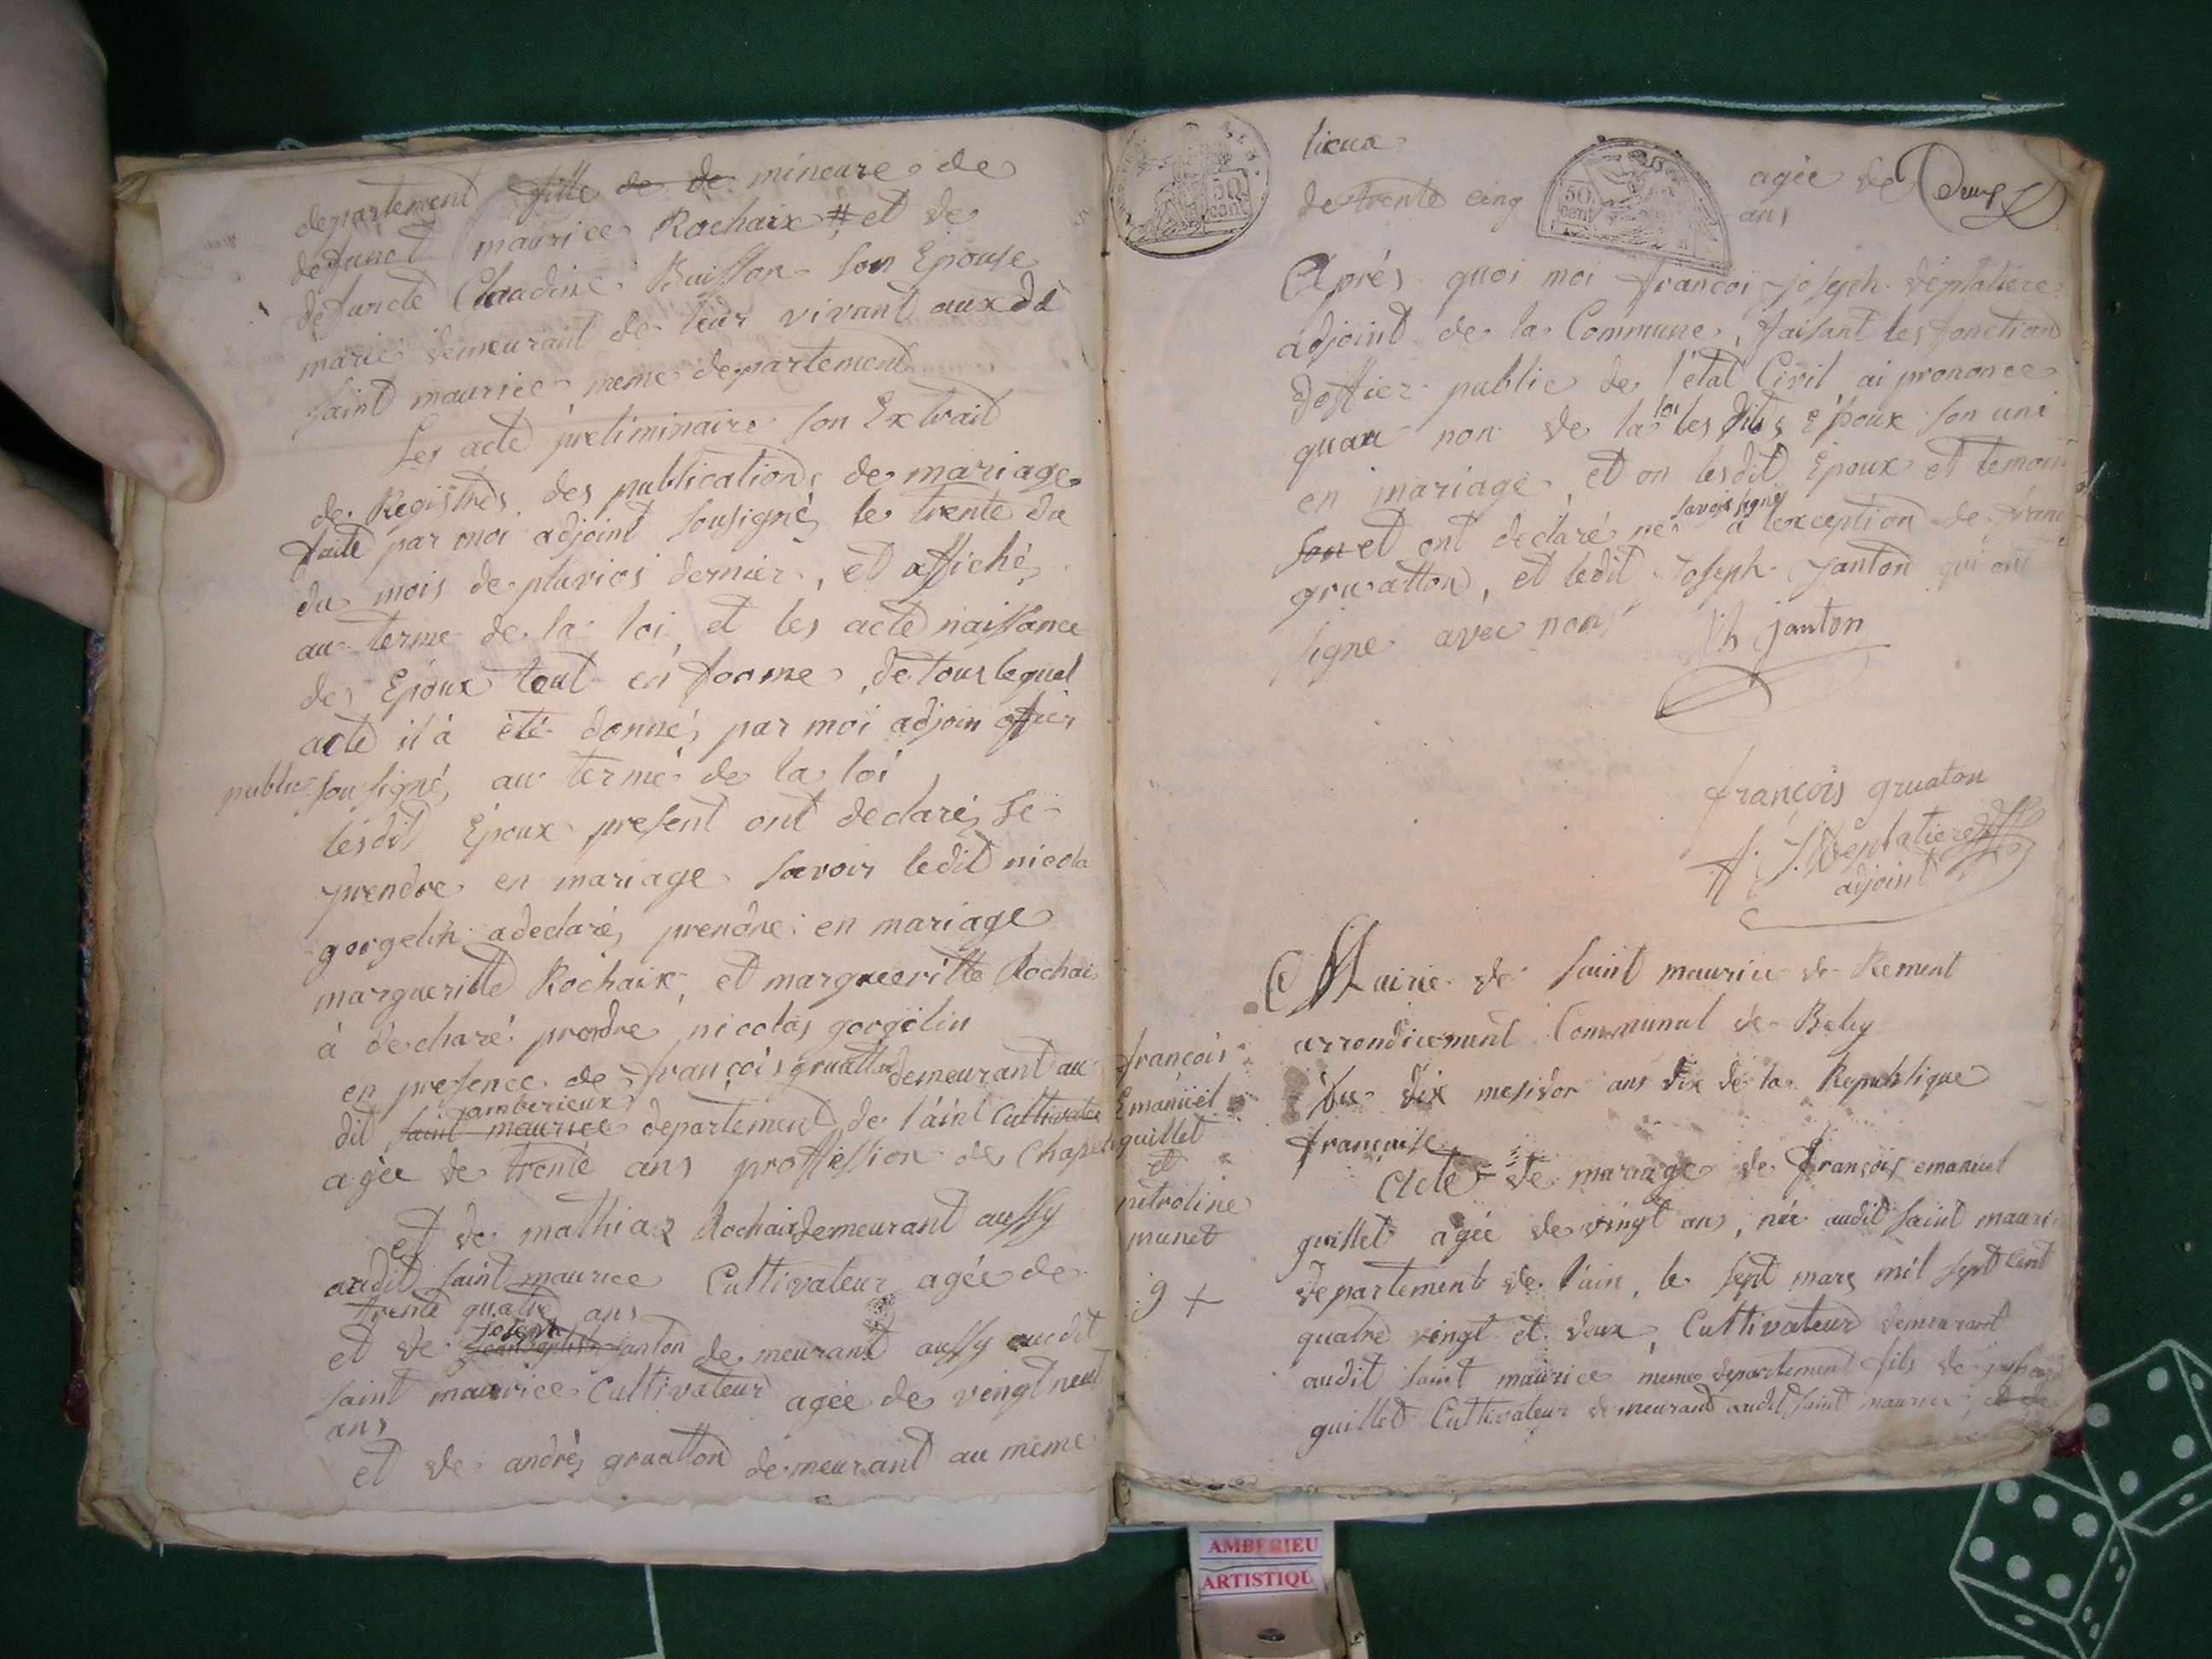 departement fille de de mineure de
defunct maurice Rochaix # et de
defuncte Claudine Buisson son Epouse
marié demeurant de leur vivant aux dit
saint maurice meme departement
Les acte préliminaire son Extrait
de Registres des publications de mariage
faite par moi adjoint sousigné, le trente du
du mois de pluvios dernier, et affiché,
au terme de la loi et les acte naissance
des Epoux tout en forme, de tous lequel
acte il à été donné, par moi adjoin officier
public sousigné, au terme de la loi
lesdit Epoux present ont declaré, se
prendre en mariage savoir ledit nicola
gorgelin a declaré, prendre en mariage
margueritte Rochaix, et margueritte Rochai
à decharé prendre nicolas gorgelin
en presence de françois gruatton demeurant au
amberieux
dit saint maurice departement de l'aint Cultivateu
agée de trente ans proffession de
et de mathiaz Rochaix demeurant aussy
audit saint maurice Cultivateur agée de
trente quatre ans
joseph
et de janton demeurant aussy audit
saint maurice Cultivateur agée de vingt neuf
ans
et de andré, gruatton demeurant au meme
50 cent
lieux
de trente cinq
50 cent
agée de
ans
Aprés quoi moi francoi joseph deplatiere
adjoint de la Commune, faisant les fonction
doffier public de l'état Civil ai prononce
loi
quau non de la les dits époux son uni
en mariage et on lesdit Epoux et temoin
savoir signé
son et ont declaré ne à lexception de
gruatton, et ledit Joseph Janton qui ont
signé avec nous
Jh janton
françois gruaton
f. J. Deplatiere
adjoint
Mairie de saint maurice de Rement
arrondicement Communal de Beley
Du dix mesidor ans dix de la Republique
française
Acte de mariage de François emanuel
guillet agée de vingt ans, née audit saint mauri
departement de l'ain, le sept mars mil sept cent
quatre vingt et deux, Cultivateur demeurant
audit saint maurice meme departement fils de
guillet Cultivateur demeurant audit saint maurice, et de
françois
Emanüel
guillet
et
petroline
munet
9 +
AMBERIEU
ARTISTIQU